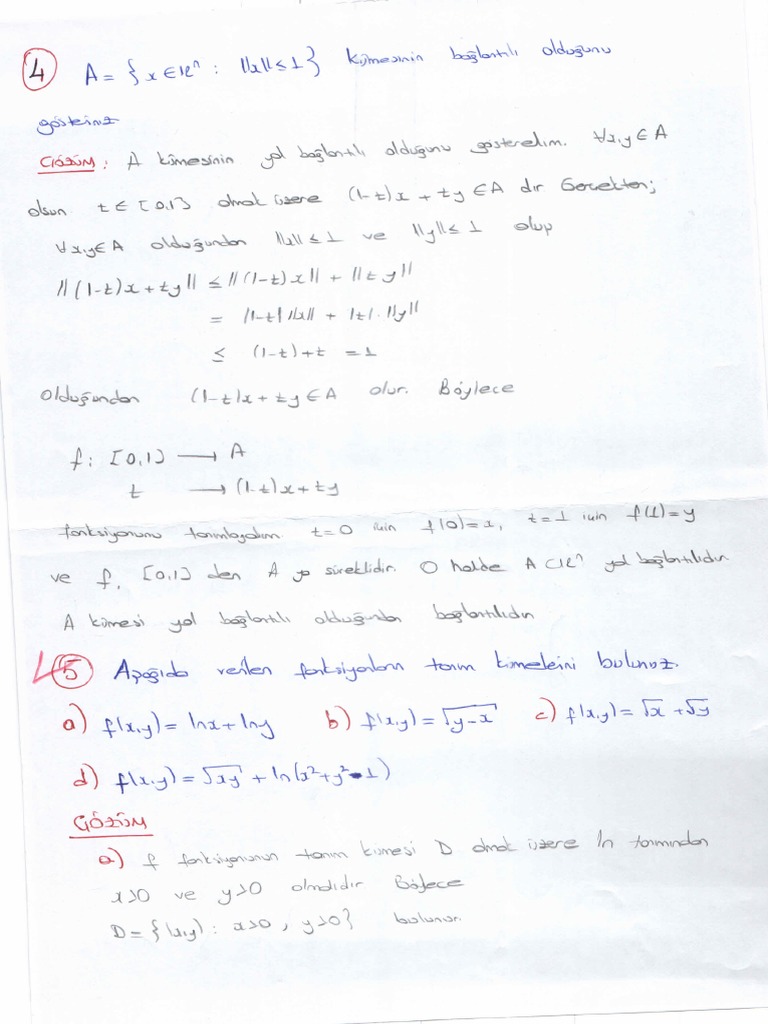 4 A = { x ∈ ℝⁿ : ||x|| ≤ 1 } kümesinin bağlantılı olduğunu
gösteriniz
ÇÖZÜM: A kümesinin yol bağlantılı olduğunu gösterelim. ∀x,y ∈ A
olsun t ∈ [0,1] olmak üzere (1-t)x + ty ∈ A dır Gerçekten;
∀x,y ∈ A olduğundan ||x|| ≤ 1 ve ||y|| ≤ 1 olup
||(1-t)x + ty|| ≤ ||(1-t)x|| + ||ty||
= |1-t| ||x|| + |t|. ||y||
≤ (1-t)+t = 1
Olduğundan (1-t)x + ty ∈ A olur. Böylece
f: [0,1] → A
t → (1-t)x + ty
fonksiyonunu tanımlayalım. t=0 için f(0)=x, t=1 için f(1)=y
ve f, [0,1] den A ya süreklidir. O halde A ⊂ ℝⁿ yol bağlantılıdır
A kümesi yol bağlantılı olduğundan bağlantılıdır
5 Aşağıda verilen fonksiyonların tanım kümelerini bulunuz.
a) f(x,y) = lnx + lny b) f(x,y) = √(y-x) c) f(x,y) = √x + √y
d) f(x,y) = √(xy) + ln(x²+y²-1)
ÇÖZÜM
a) f fonksiyonunun tanım kümesi D olmak üzere ln tanımından
x>0 ve y>0 olmalıdır Böylece
D = {(x,y) : x>0, y>0} bulunur.